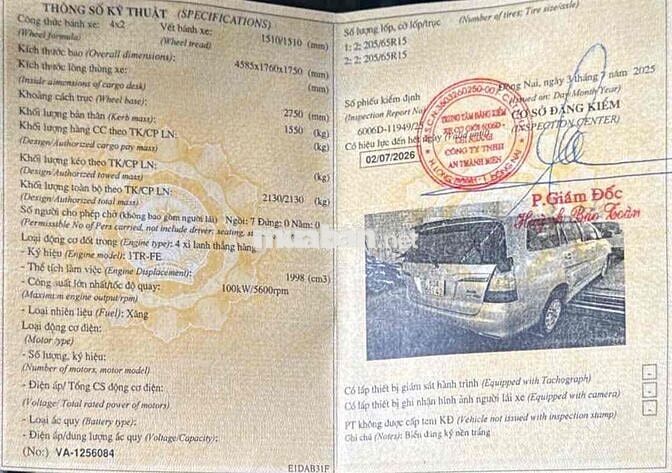 THÔNG SỐ KỸ THUẬT (SPECIFICATIONS)
Công thức bánh xe: 4x2 Vết bánh xe: 1510/1510 (mm)
(Wheel formula) (Wheel tread)
Kích thước bao (Overall dimensions): 4585x1760x1750 (mm)
Kích thước lòng thùng xe: (mm)
(Inside dimensions of cargo desk)
Khoảng cách trục (Wheel base): 2750 (mm)
Khối lượng bản thân (Kerb mass): 1550 (kg)
Khối lượng hàng CC theo TK/CP LN: (kg)
(Design/Authorized cargo pay mass)
Khối lượng kéo theo TK/CP LN: (kg)
(Design/Authorized towed mass)
Khối lượng toàn bộ theo TK/CP LN: 2130/2130 (kg)
(Design/Authorized total mass)
Số người cho phép chở (không bao gồm người lái) Ngồi: 7 Đứng: 0 Nằm: 0
(Permissible No of Pers carried, not include driver: seating, st
Loại động cơ đốt trong (Engine type): 4 xi lanh thẳng hàng
- Ký hiệu (Engine model): 1TR-FE
- Thể tích làm việc (Engine Displacement): 1998 (cm3)
- Công suất lớn nhất/tốc độ quay: 100kW/5600rpm
(Maximum engine output/rpm)
- Loại nhiên liệu (Fuel): Xăng
Loại động cơ điện:
(Motor type)
- Số lượng, ký hiệu:
(Number of motors, motor model)
- Điện áp/ Tổng CS động cơ điện:
(Voltage/ Total rated power of motors)
- Loại ắc quy (Battery type):
- Điện áp/dung lượng ắc quy (Voltage/Capacity):
(No:) VA-1256084
E1DAB31F
Số lượng lốp, cỡ lốp/trục (Number of tires; Tire size/axle)
1: 2; 205/65R15
2: 2; 205/65R15
Đồng Nai, ngày 3 tháng 7 năm 2025
(Issued on: Day/Month/Year)
Số phiếu kiểm định
(Inspection Report No)
6006D-11949/25
CƠ SỞ ĐĂNG KIỂM
(INSPECTION CENTER)
Có hiệu lực đến hết ngày
02/07/2026
TRUNG TÂM ĐĂNG KIỂM
XE CƠ GIỚI 6006D
CÔNG TY TNHH
AN THÀNH BIÊN
P.Giám Đốc
Huỳnh Bảo Toàn
muaban.net
Có lắp thiết bị giám sát hành trình (Equipped with Tachograph) -
Có lắp thiết bị ghi nhận hình ảnh người lái xe (Equipped with camera) -
PT không được cấp tem KĐ (Vehicle not issued with inspection stamp) -
Ghi chú (Notes): Biển đăng ký nền trắng